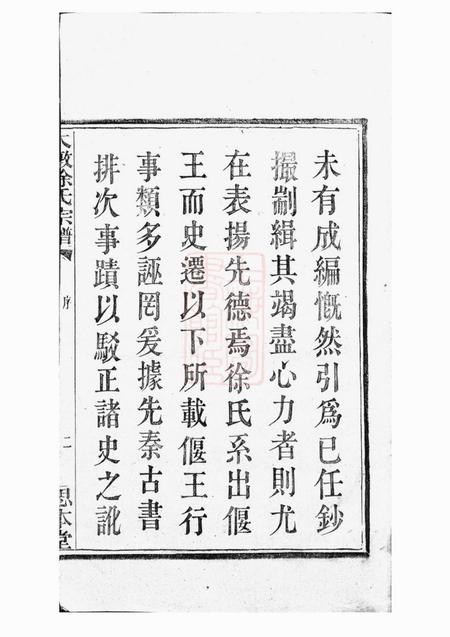 未有成編慨然引爲已任鈔
撮劄緝其竭盡心力者則尤
在表揚先德焉徐氏系出偃
王而史遷以下所載偃王行
事類多誣罔爰據先秦古書
排次事蹟以駁正諸史之訛
徐氏宗譜
序
二
思本堂